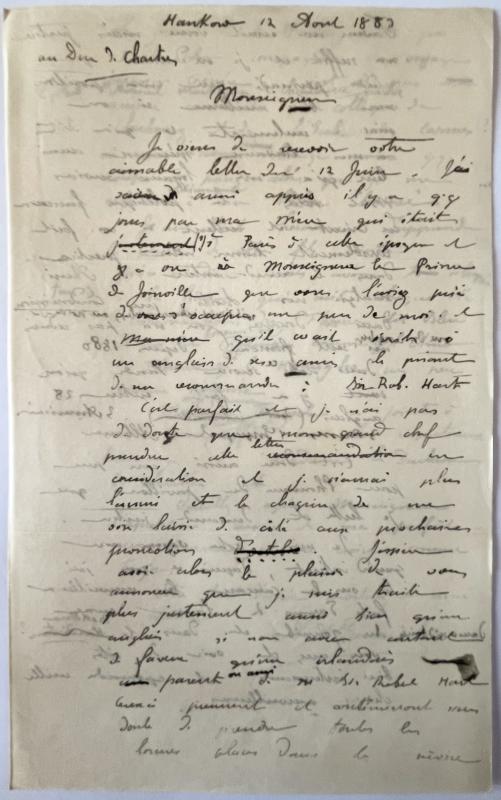 Hankow 12 Avril 1883
au Duc de Chartres
Monseigneur
Je viens de recevoir votre
aimable lettre du 12 Juin. J'ai
aussi appris il y a qq
jours par ma mère qui était
justement à Paris à cette époque et
y a vu Monseigneur le Prince
de Joinville que vous l'aviez prié
de s'occuper un peu de moi et
Ma mère qu'il avait écrit à
un anglais de ses amis le priant
de me recommander à Sir Rob. Hart
C'est parfait et je n'ai pas
de doute que mon grand chef
prendra cette lettre recommandation en
considération et je n'aurai plus
l'ennui et le chagrin de me
voir laissé de côté aux prochaines
promotions d'octobre. J'espère
avoir alors le plaisir de vous
annoncer que je suis traité
plus justement aussi bien qu'un
anglais si non avec autant
de faveur qu'un irlandais
parent ou ami de Sir Robert Hart
prennent et continueront sans
doute de prendre toutes les
bonnes places dans le service